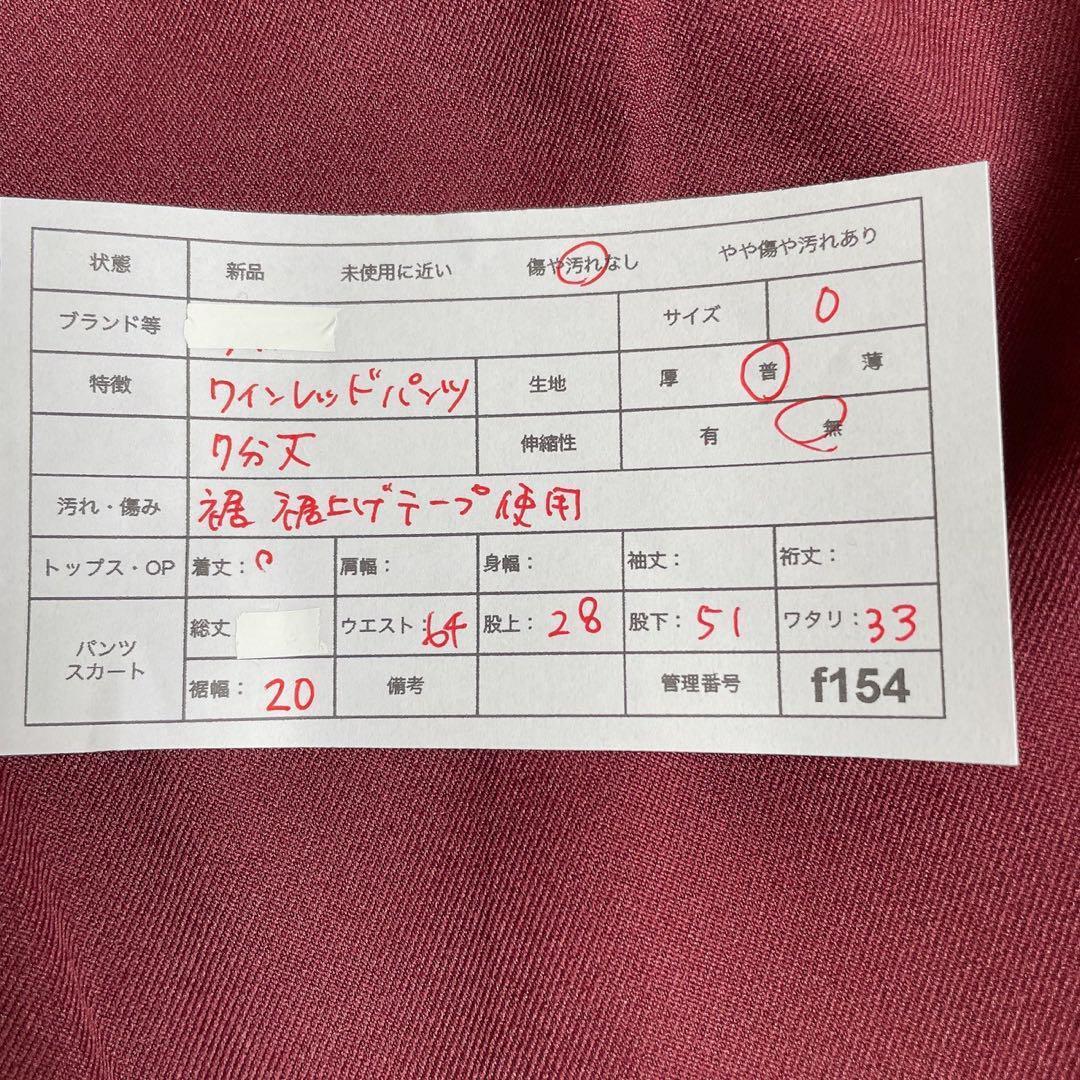 状態 新品 未使用に近い 傷や汚れなし やや傷や汚れあり
ブランド等 サイズ 0
特徴 ワインレッドパンツ 生地 厚 普 薄
7分丈 伸縮性 有 無
汚れ・傷み 裾 裾上げテープ使用
トップス・OP 着丈： 肩幅： 身幅： 袖丈： 裄丈：
パンツ スカート 総丈 ウエスト：64 股上：28 股下：51 ワタリ：33
裾幅：20 備考 管理番号 f154